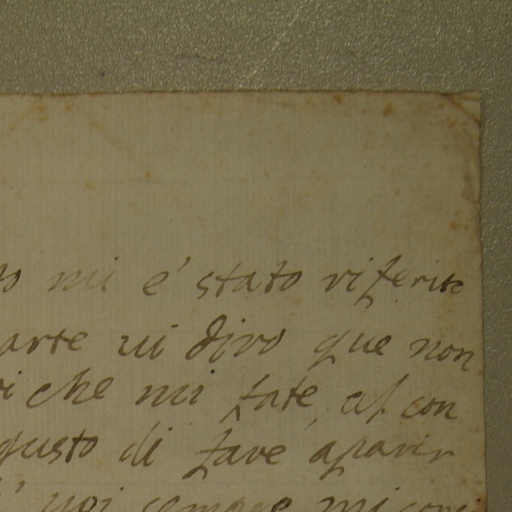 mi e' stato riferito
arte vi diro que non
i che mi fate, al con
gusto di fare aparir
voi sempre mi